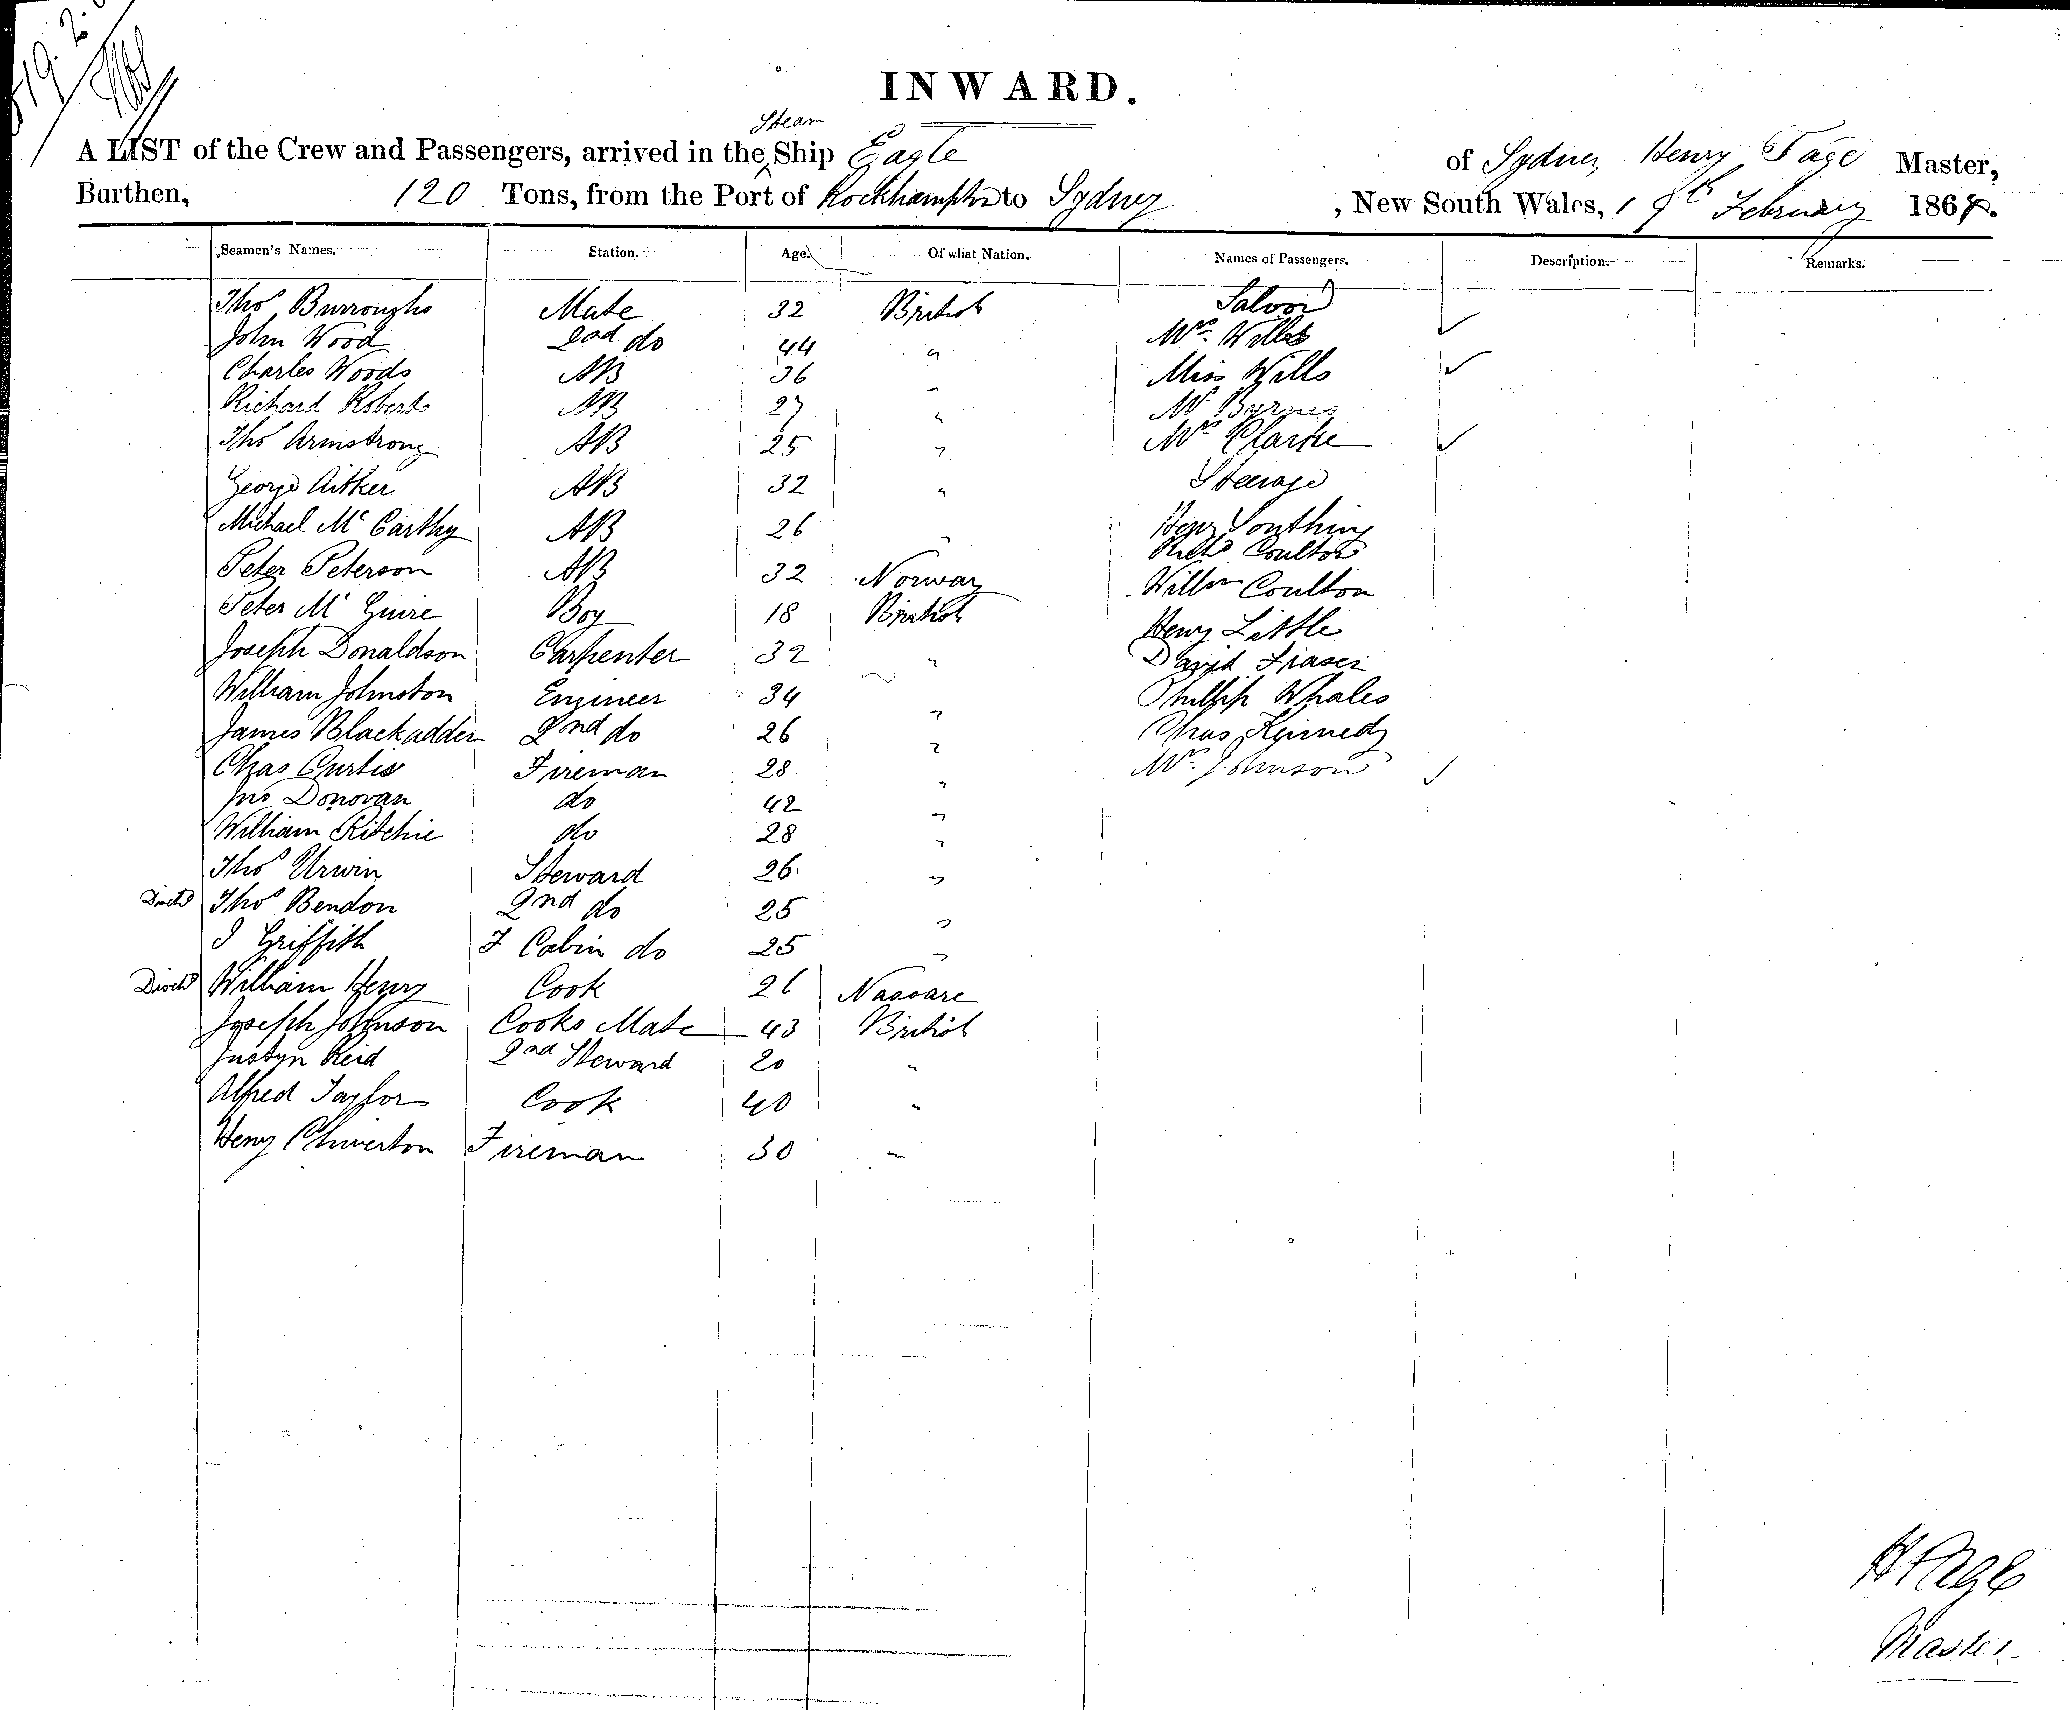 19. 2.
INWARD.
Steam
A LIST of the Crew and Passengers, arrived in the Ship Eagle of Sydney, Henry Page Master,
Burthen, 120 Tons, from the Port of Rockhampton to Sydney, New South Wales, 19th February 1868.
Seamen's Names. Station. Age. Of what Nation. Names of Passengers. Description. Remarks.
Thos Burroughs Mate 32 British Saloon
John Wood 2nd do 44 " Mrs. Wills
Charles Woods AB 36 " Miss Wills
Richard Roberts AB 27 " Mr Byrnes
Thos Armstrong AB 25 " Mrs Clarke
George Aitker AB 32 " Steerage
Michael Mc Carthy AB 26 " Henry Southing
Richd Coulton
Peter Peterson AB 32 Norway Willm Coulton
Peter Mc Guire Boy 18 British Henry Little
Joseph Donaldson Carpenter 32 " David Fraser
William Johnston Engineer 34 " Phillip Whales
James Blackadder 2nd do 26 " Chas Kennedy
Chas Curtis Fireman 28 " Mr. Johnson
Jno Donovan do 42 "
William Ritchie do 28 "
Thos Urwin Steward 26 "
Dischd Thos Bendon 2nd do 25 "
J Griffith F Cabin do 25 "
Dischd William Henry Cook 26 Nassare
Joseph Johnson Cooks Mate 43 British
Justyn Reid 2nd Steward 20 "
Alfred Taylor Cook 40 "
Henry Chiverton Fireman 30 "
H Page
Master